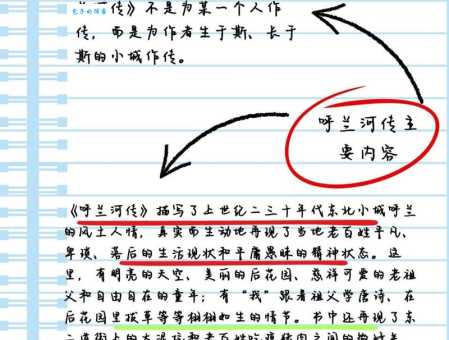 兰河传》不是为某一个人作
传，而是为作者生于斯、长于
斯的小城作传。
呼兰河传主
要内容
《呼兰河传》描写了上世纪二三十年代东北小城呼兰
的风土人情，真实而生动地再现了当地老百姓平凡、
卑琐、落后的生活现状和平庸愚昧的精神状态。这
里，有明亮的天空、美丽的后花园、慈祥可爱的老祖
父和自由自在的童年；有“我”跟着祖父学唐诗、在
后花园里拔草等等栩栩如生的情节。书中还再现了东
二道街上的大泥坑和老百姓吃瘟猪肉之间的微妙关